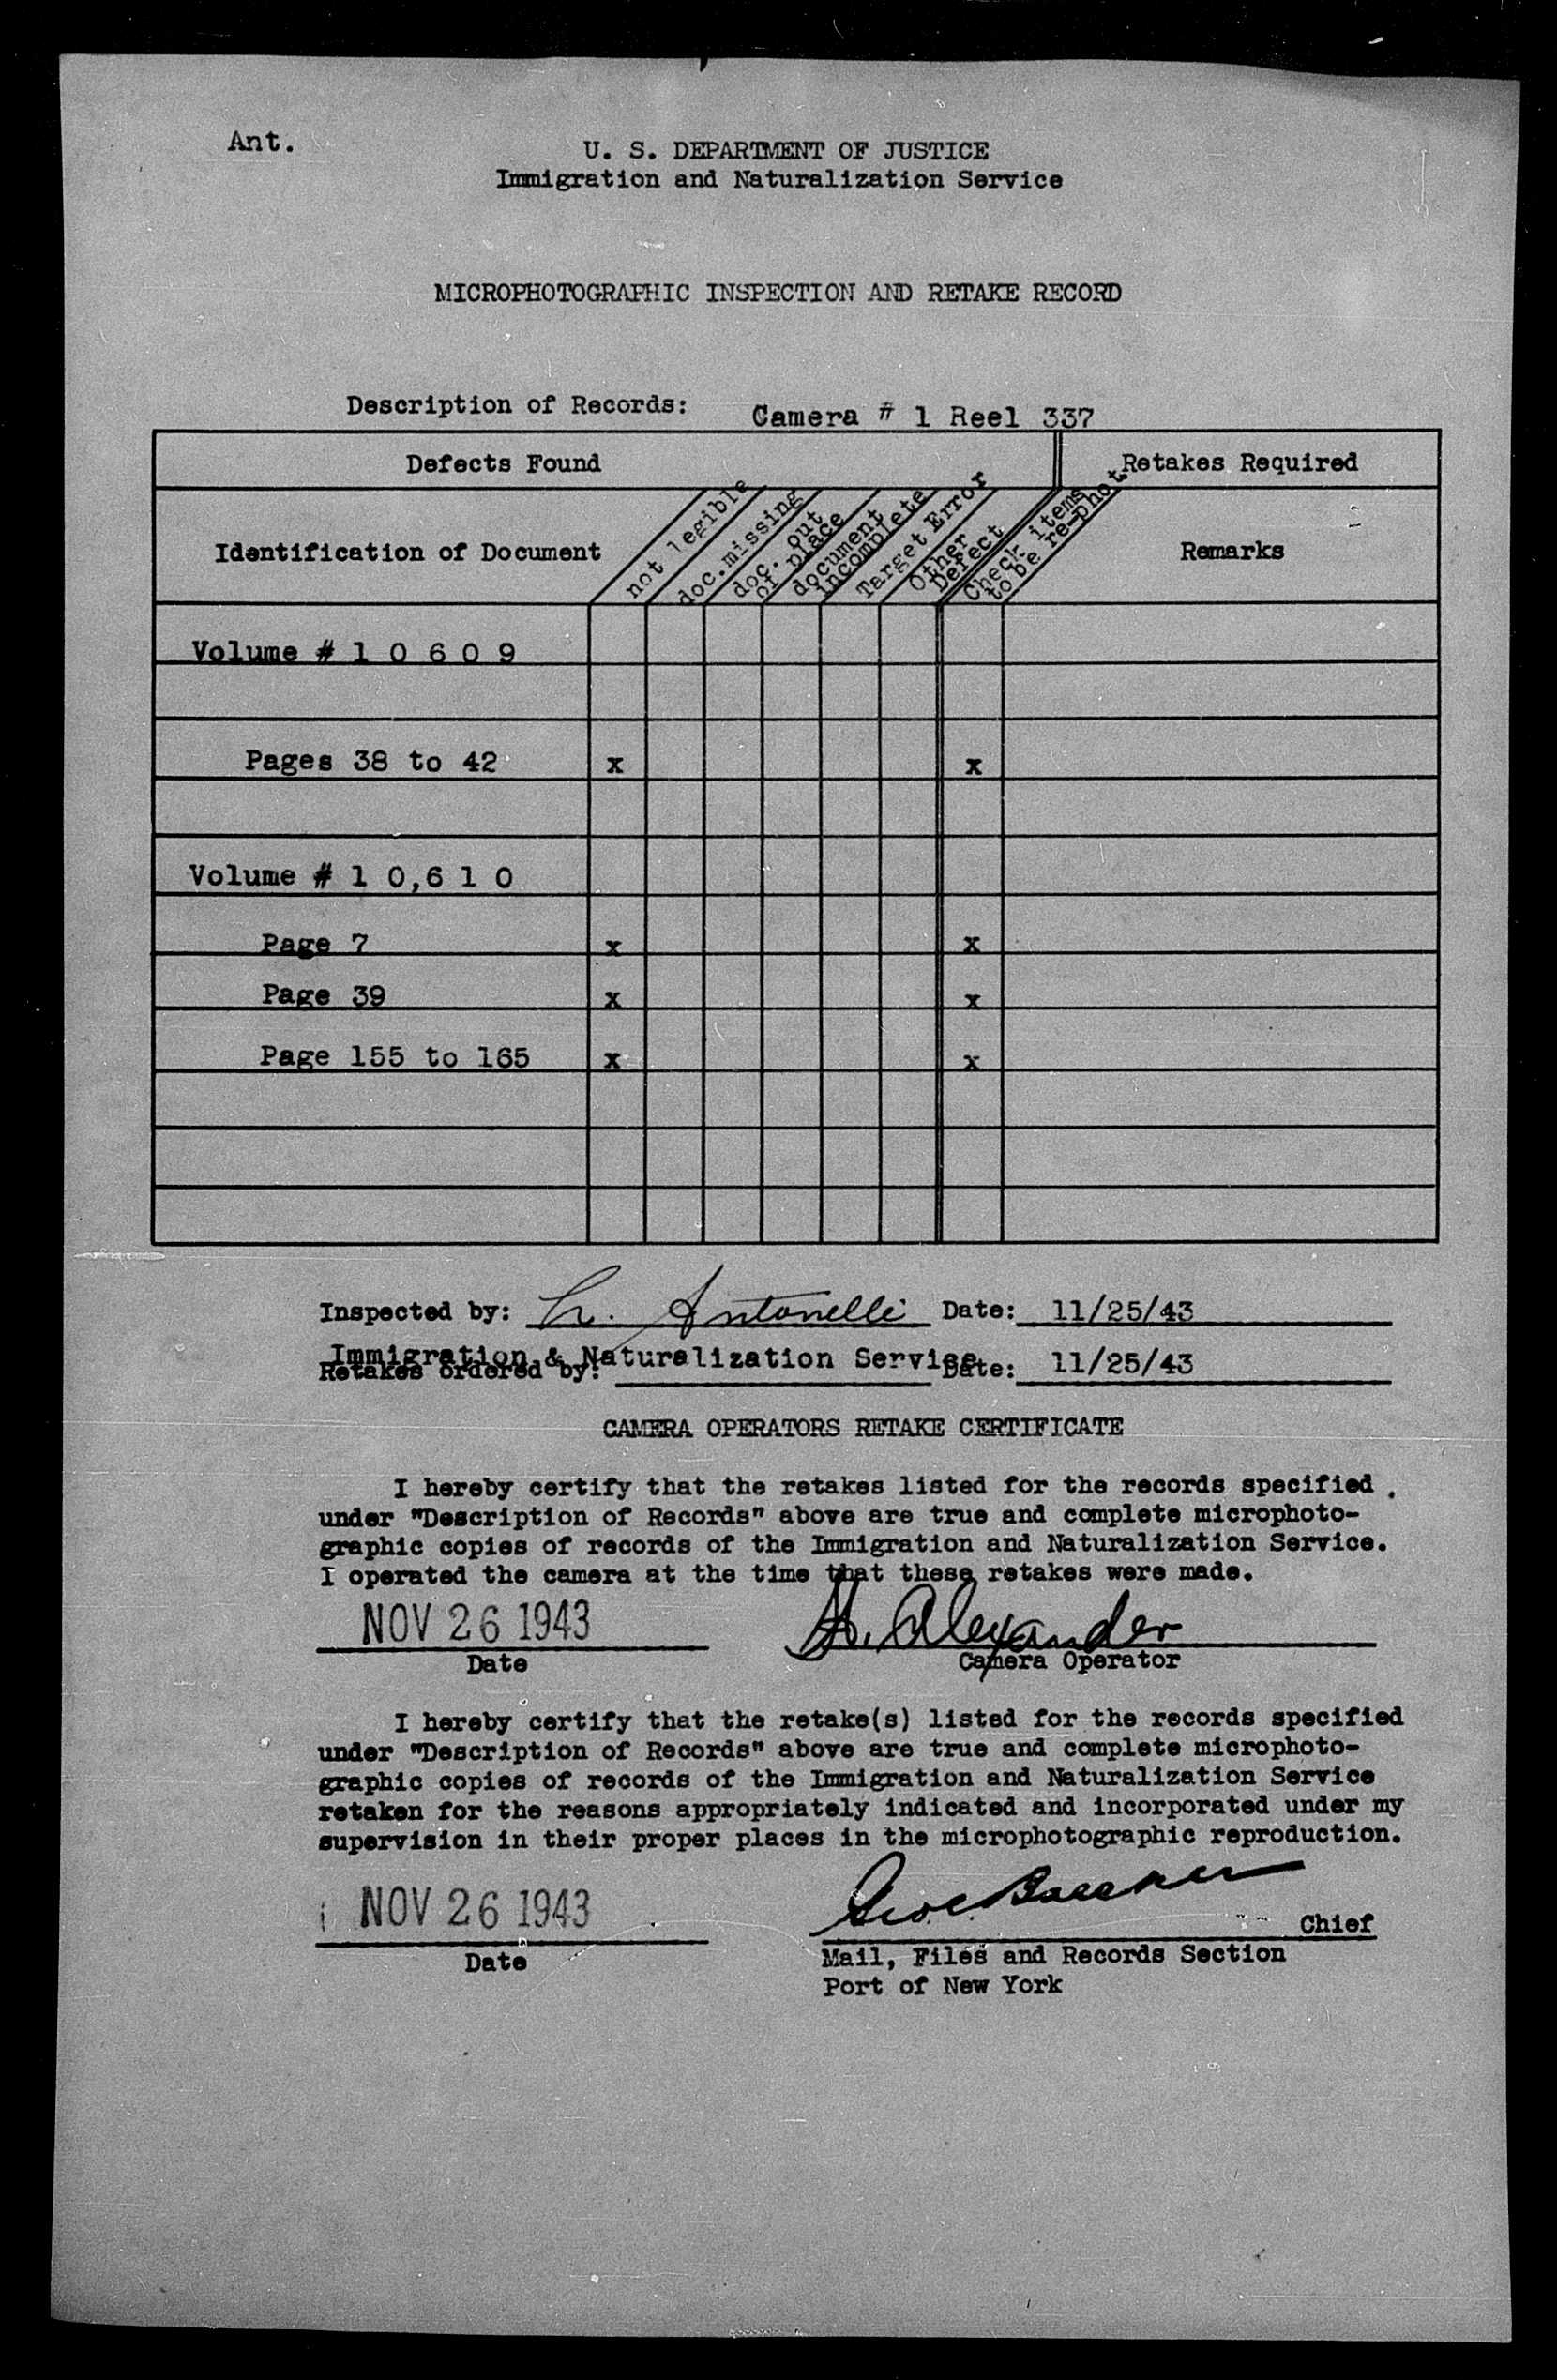 Ant.
U. S. DEPARTMENT OF JUSTICE
Immigration and Naturalization Service
MICROPHOTOGRAPHIC INSPECTION AND RETAKE RECORD
Description of Records: Camera # 1 Reel 337
Defects Found
Retakes Required
Identification of Document
not legible
doc.missing
doc. out
of place
document
incomplete
Target Error
Other
Defect
Check items
to be re-phot.
Remarks
Volume # 1 0 6 0 9
Pages 38 to 42 x x
Volume # 1 0,6 1 0
Page 7 x x
Page 39 x x
Page 155 to 165 x x
Inspected by: Antonelli Date: 11/25/43
Immigration & Naturalization Service
Retakes ordered by: Date: 11/25/43
CAMERA OPERATORS RETAKE CERTIFICATE
I hereby certify that the retakes listed for the records specified
under "Description of Records" above are true and complete microphoto-
graphic copies of records of the Immigration and Naturalization Service.
I operated the camera at the time that these retakes were made.
NOV 26 1943 Alexander
Date Camera Operator
I hereby certify that the retake(s) listed for the records specified
under "Description of Records" above are true and complete microphoto-
graphic copies of records of the Immigration and Naturalization Service
retaken for the reasons appropriately indicated and incorporated under my
supervision in their proper places in the microphotographic reproduction.
NOV 26 1943
Chief
Date Mail, Files and Records Section
Port of New York